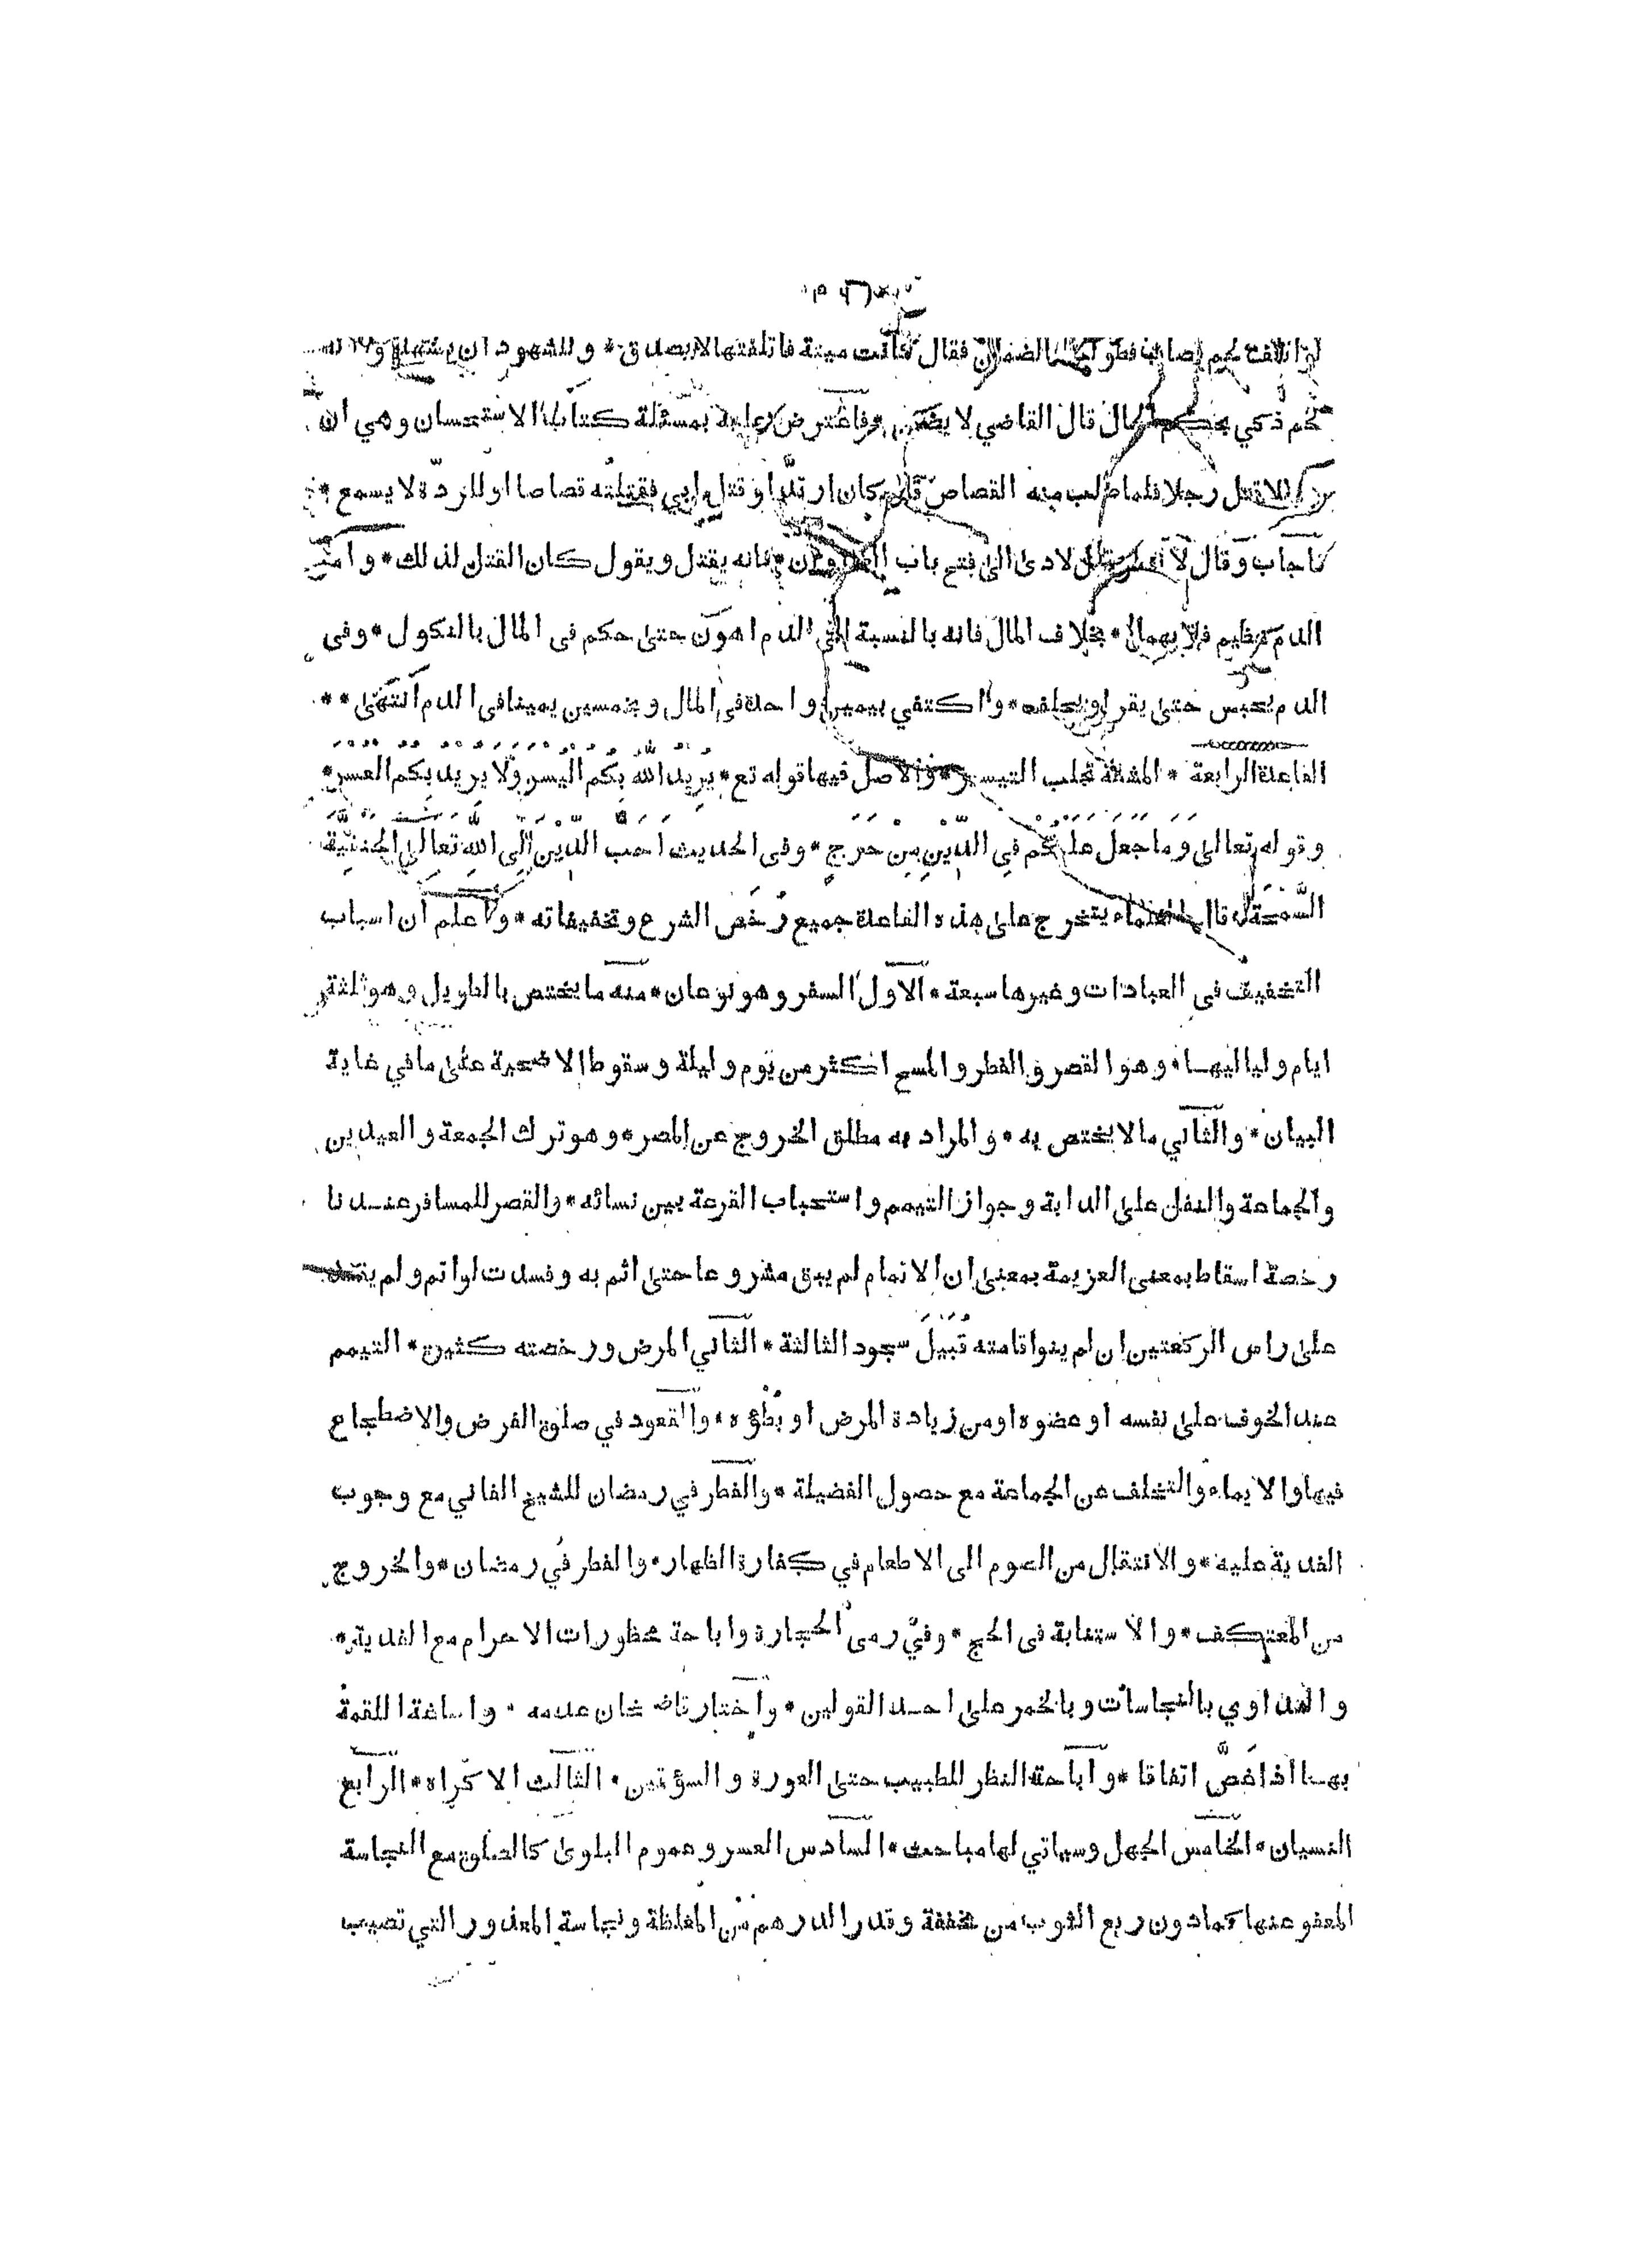 لو اتلف لحم قصاب فطولب بالضمان فقال كانت ميتة فاتلفتها لا يصدق * وللشهود ان يشهدوا
لحم ذكي بحكم الحال قال القاضي لا يضمن * فاعترض عليه بمسئلة كتاب الاستحسان وهي ان
رجلا قتل رجلا فلما طلب منه القصاص قال كان ارتد او قتل ابي فقتلته قصاصا او للردة لا يسمع *
فاجاب وقال لانه لو قبل لادى الى فتح باب العدوان * فانه يقتل ويقول كان القتل لذلك * وامر
الدم عظيم فلا يهمل * بخلاف المال فانه بالنسبة الى الدم اهون حتى حكم فى المال بالنكول * وفى
الدم يحبس حتى يقر او يحلف * واكتفي بيمين واحدة فى المال وبخمسين يمينا فى الدم انتهى * *
القاعدة الرابعة * المشقة تجلب التيسير * والاصل فيها قوله تع * يُرِيدُ اللهُ بِكُمُ الْيُسْرَ وَلَا يُرِيدُ بِكُمُ الْعُسْرَ *
وقوله تعالى وَمَا جَعَلَ عَلَيْكُمْ فِي الدِّيْنِ مِنْ حَرَجٍ * وفى الحديث احب الدِّيْنِ اِلَى اللهِ تَعَالَى الْحَنِيْفِيَّةُ
السَّمْحَةُ * قال العلماء يتخرج على هذه القاعدة جميع رُخَص الشرع وتخفيفاته * واعلم ان اسباب
التخفيف فى العبادات وغيرها سبعة * الاول السفر وهو نوعان * منه ما يختص بالطويل وهو ثلثة
ايام ولياليها * وهو القصر والفطر والمسح اكثر من يوم وليلة وسقوط الاضحية على ما في غاية
البيان * والثاني ما لا يختص به * والمراد به مطلق الخروج عن المصر * وهو ترك الجمعة والعيدين
والجماعة والنفل على الدابة وجواز التيمم واستحباب القرعة بين نسائه * والقصر للمسافر عندنا
رخصة اسقاط بمعنى العزيمة بمعنى ان الاتمام لم يبق مشروعا حتى اثم به وفسدت لو اتم ولم يقعد
على راس الركعتين ان لم ينو اقامته قُبَيْلَ سجود الثالثة * الثاني المرض ورخصته كثيرة * التيمم
عند الخوف على نفسه او عضوه او من زيادة المرض او بُطْؤه * والقعود في صلوة الفرض والاضطجاع
فيها والايماء والتخلف عن الجماعة مع حصول الفضيلة * والفطر في رمضان للشيخ الفاني مع وجوب
الفدية عليه * والانتقال من الصوم الى الاطعام في كفارة الظهار * والفطر في رمضان * والخروج
من المعتكف * والاستنابة فى الحج * وفي رمى الحجارة واباحة محظورات الاحرام مع الفدية *
والتداوي بالنجاسات وبالخمر على احد القولين * واختار قاضي خان عدمه * واساغة اللقمة
بها اذا غصَّ اتفاقا * واباحة النظر للطبيب حتى العورة والسؤتين * الثالث الاكراه * الرابع
النسيان * الخامس الجهل وسياتي لها مباحث * السادس العسر وعموم البلوى كالصلوة مع النجاسة
المعفو عنها كما دون ربع الثوب من مخففة وقدر الدرهم من المغلظة ونجاسة المعذور التي تصيب